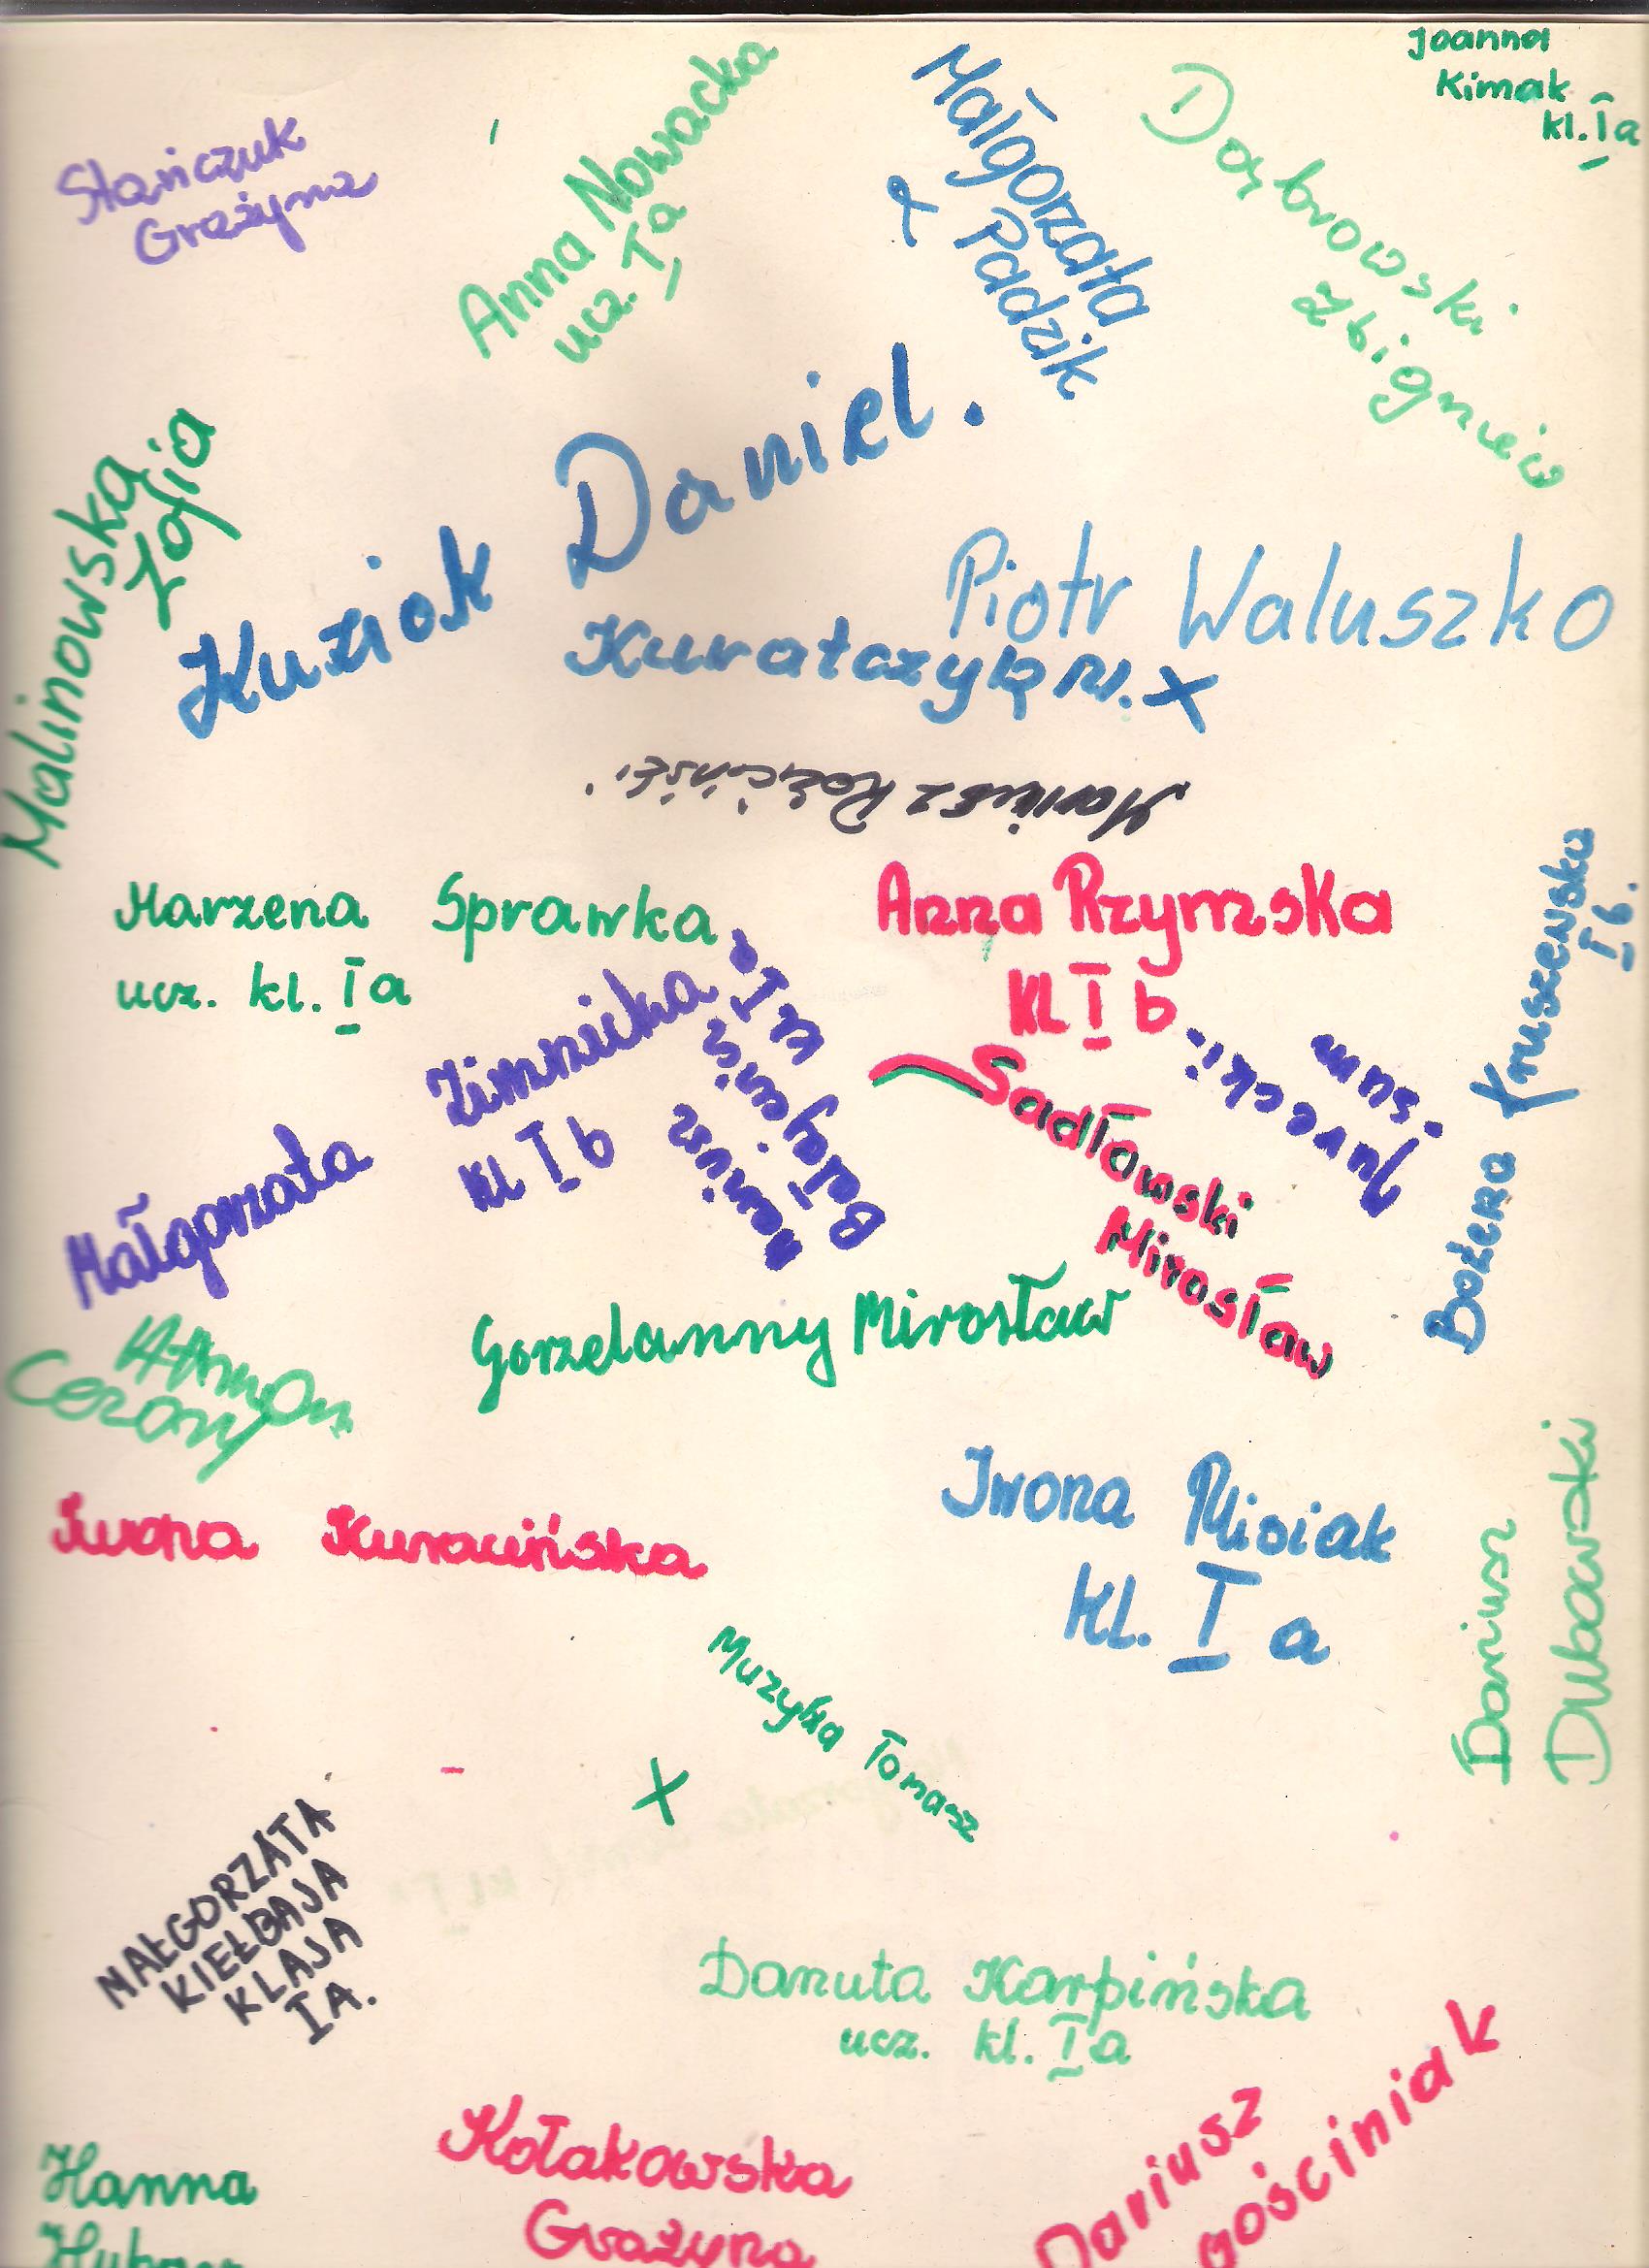 Joanna
Kimak
kl. Ia
Stańczuk
Grażyna
Anna Nowacka
ucz. Ia
Małgorzata
Padzik
Dąbrowski
Zbigniew
Malinowska
Zofia
Kuziok Daniel.
Piotr Waluszko
Kuratczyk
Mariusz
Marzena Sprawka
ucz. kl. Ia
Anna Rzymska
Kl I b
Bożena Kruszewska
I b.
Małgorzata Zimnicka
kl I b
Jurecki
Sadłowski
Mirosław
Gorzelanny Mirosław
Cezary
Iwona Kuracińska
Iwona Misiak
Kl. I a
Dariusz
Dubowski
Muzyka Tomasz
X
MAŁGORZATA
KIEŁBASA
KLASA
IA.
Danuta Karpińska
ucz. kl. Ia
Kołakowska
Grażyna
Dariusz
gościniak
Hanna